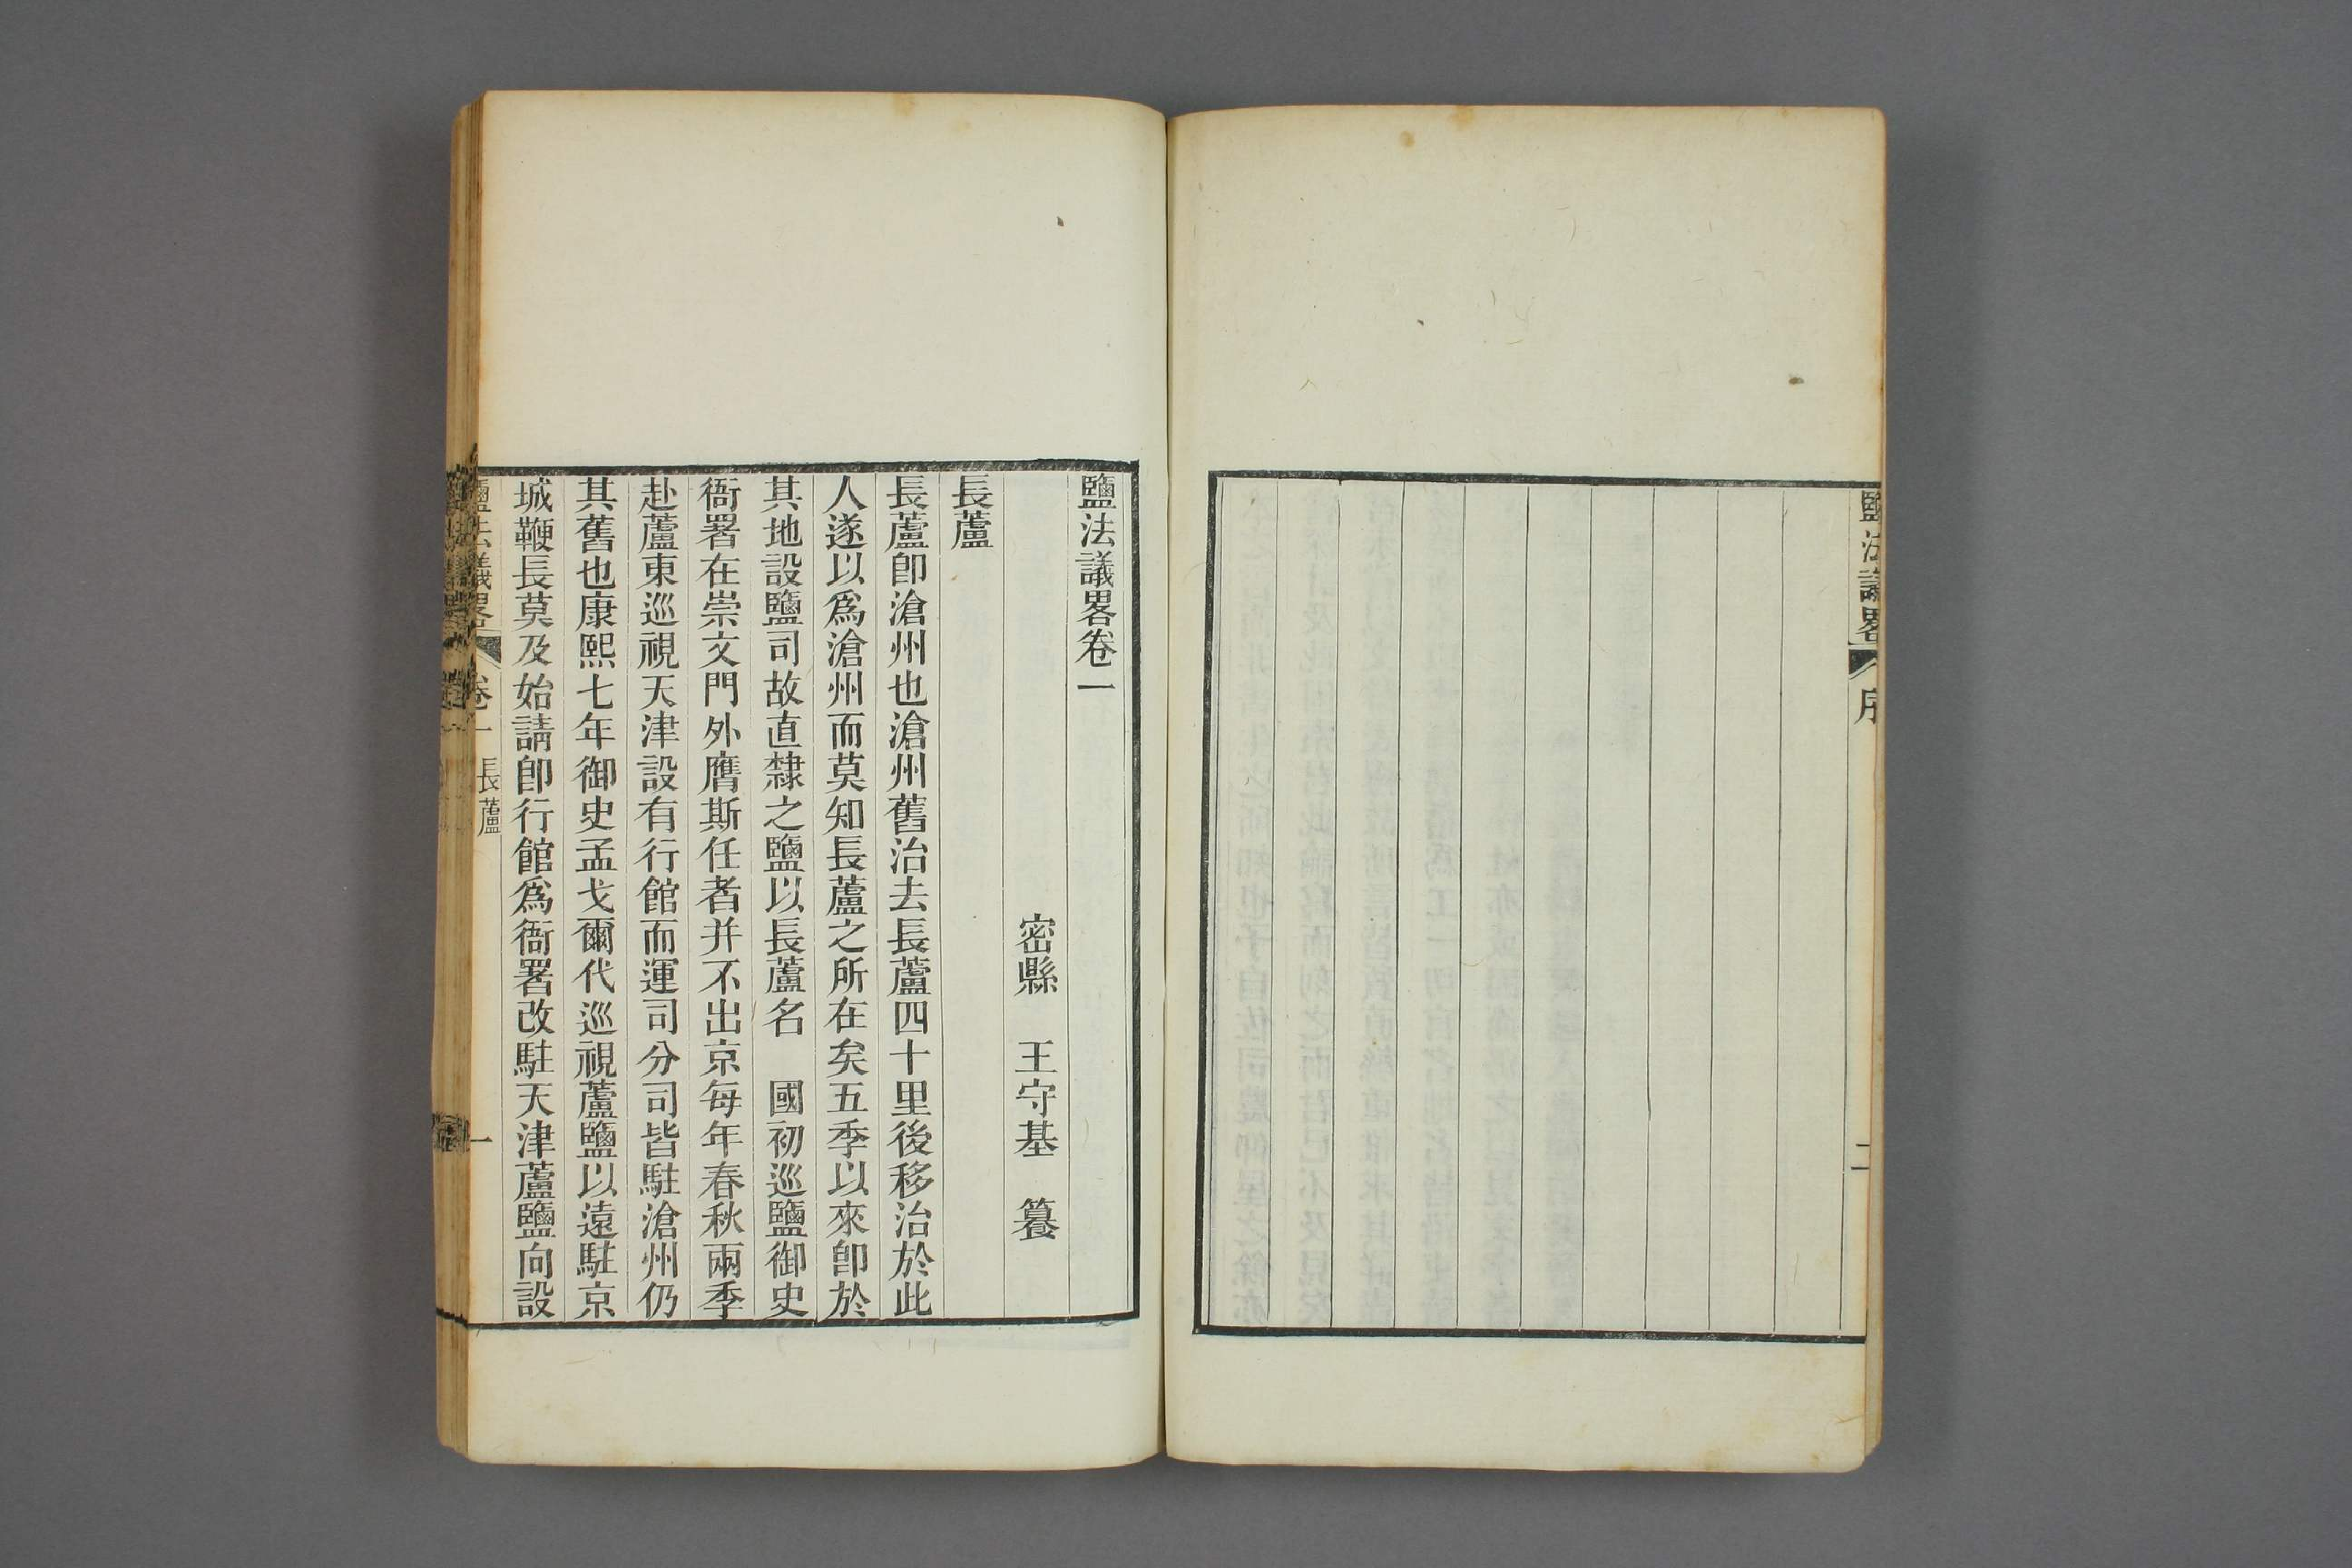 鹽法議畧
序
二
鹽法議畧卷一
密縣　王守基　纂
長蘆
長蘆卽滄州也滄州舊治去長蘆四十里後移治於此
人遂以爲滄州而莫知長蘆之所在矣五季以來卽於
其地設鹽司故直隸之鹽以長蘆名　國初巡鹽御史
衙署在崇文門外膺斯任者并不出京每年春秋兩季
赴蘆東巡視天津設有行館而運司分司皆駐滄州仍
其舊也康熙七年御史孟戈爾代巡視蘆鹽以遠駐京
城鞭長莫及始請卽行館爲衙署改駐天津蘆鹽向設
鹽法議畧
卷一
長蘆
一